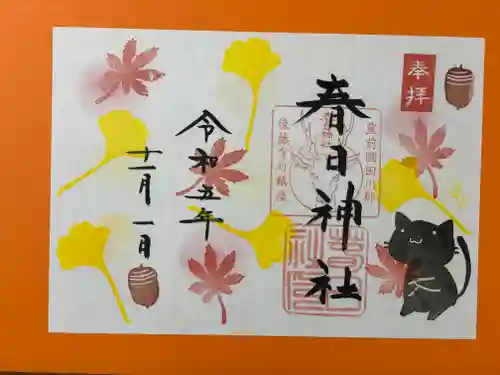 奉拝
春日神社
豊前國田川郡
後藤寺町鎮座
春日神社
令和五年
十一月一日